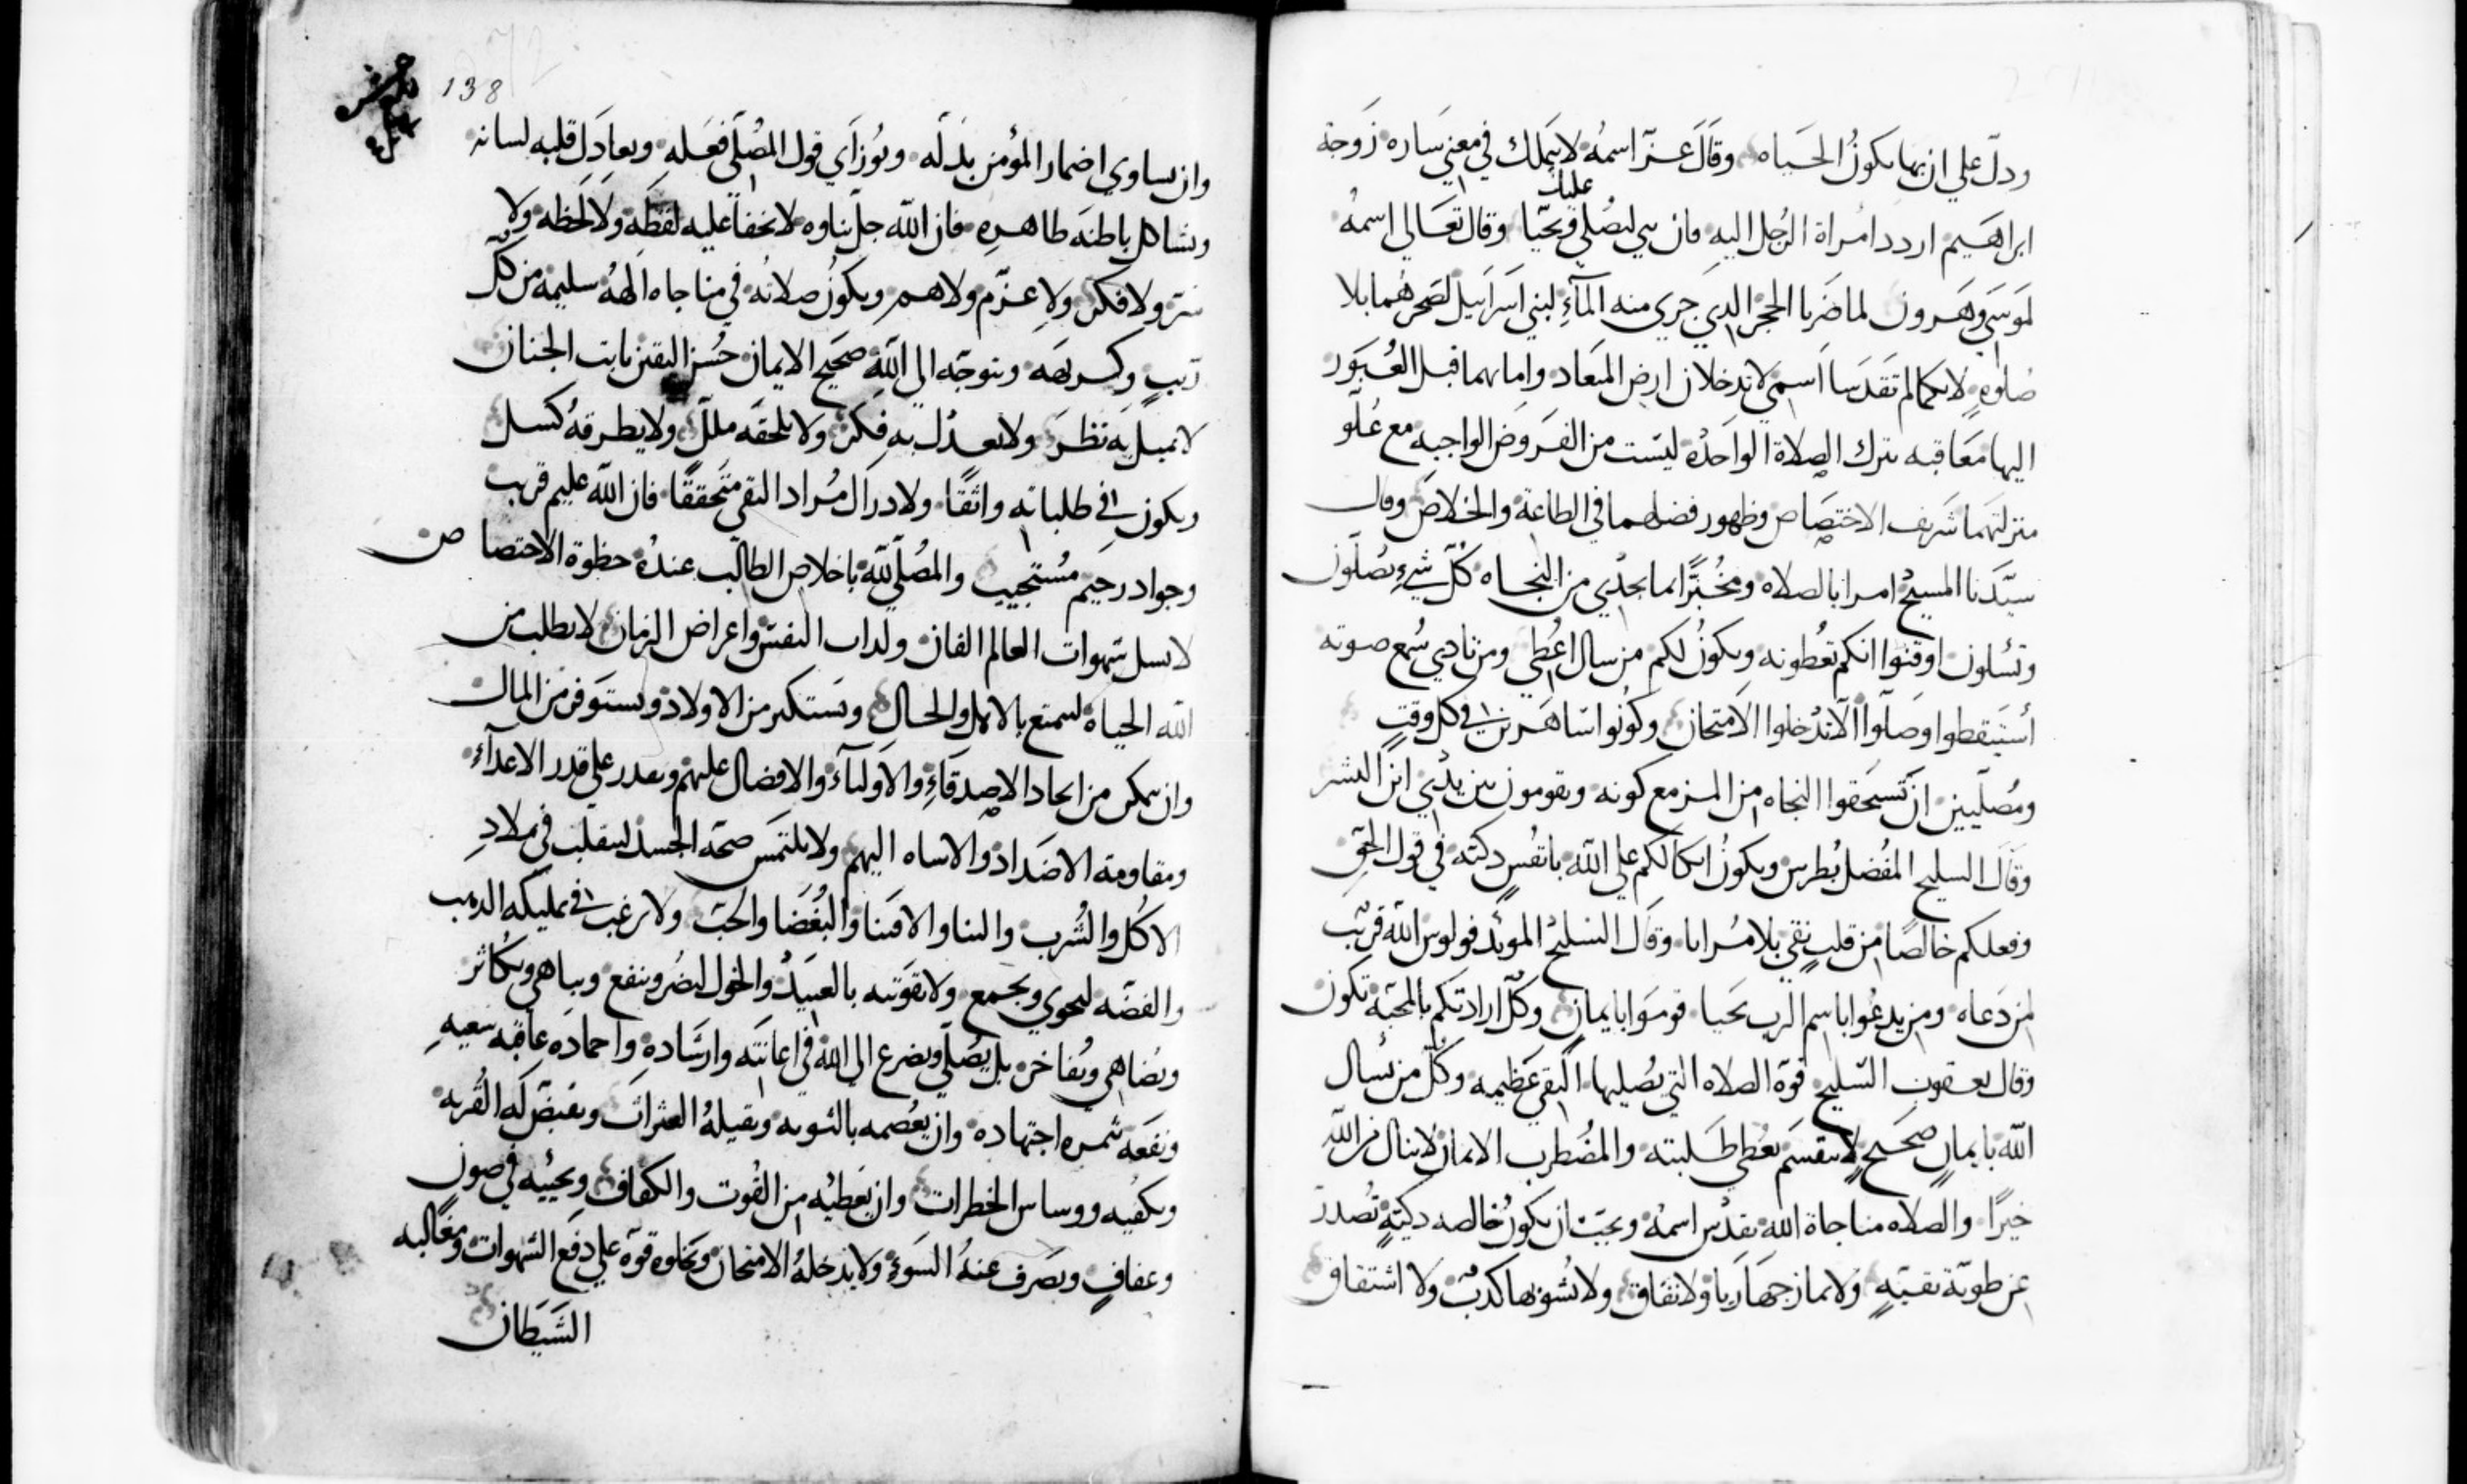 ودلّ علي ان بها يكون الحياه وقال عزّ اسمه لابيملك في معني ساره زوجة
ابراهيم اردد امراة الرجل اليه فان نبي ليصلي عليك فتحيا وقال تعالي اسمه
لموسي وهرون لما ضربا الحجر الدي جري منه المآء لبني اسراييل لضجرهما بلا
صلوه لانكما لم تقدسا اسمي لا تدخلان ارض الميعاد واماتهما قبل العبور
اليها معاقبه بترك الصلاة الواحده ليست من الفروض الواجبه مع علو
منزلتهما شريف الاختصاص وظهور فضلهما في الطاعة والخلاص وقال
سيّدنا المسيح امرا بالصلاه ومخبرًا بما يجدي من النجاه كلّ شيء تصلّون
وتسلون اوقنوا انكم تعطونه ويكون لكم من سال اعطي ومن نادي سُمع صوته
استيقطوا وصلّوا الّا تدخلوا الامتحان وكونوا ساهرين في كل وقتٍ
ومصليين ان تستحقوا النجاه من المزمع كونه وتقومون بين يدي ابن البشر
وقال السليح المفضل بطرس ويكون اتكالكم علي الله بانفس دكيّه في قول الحق
وفعلكم خالصًا من قلبٍ نقي بلا مُرايا وقال السليح المويّد فولوس الله قريب
لمن دعاه ومن يدعوا باسم الرب يحيا قوموا بايمانٍ وكلّ ارادتكم بالمحبة تكون
وقال يعقوب السّليح قوة الصلاه التي يصليها التقي عظيمه وكلّ من يسال
الله بايمانٍ صحيحٍ لا ينقسم يعطي طلبته والمضطرب الايمان لا ينال من الله
خيرًا والصلاه مناجاة الله تقدّس اسمه ويجب ان يكون خالصه دكيّةٍ تصدر
عن طويّة نقيّهٍ ولا يمازجها ريا ولا نفاق ولا تشوبها كدبٌ ولا اشتقاق
138
وان يساوي اضمار المؤمن بدله ويوزاي قول المصلّي فعله ويعادل قلبه لسانه
ويشاكل باطنه طاهره فان الله جل ثناوه لا يخفا عليه لفظه ولا لحظه ولا
سرّ ولا فكر ولا عزم ولا هم ويكون صلاته في مناجاه الهه سليمة من كلّ
ريبٍ وكريهه ويتوجّه الي الله صحيح الايمان حسن اليقين ثابت الجنان
لا يميل به نظر ولا يعدل به فكر ولا يلحقه ملل ولا يطرقه كسل
ويكون في طلباته واثقًا ولادراك مراد التقي متحققًا فان الله عليم قريب
وجواد رحيم مستجيب والمصلّي لله باخلاص الطالب عنده حظوة الاختصاص
لا يسل شهوات العالم الفان ولدات النفس واعراض الزمان لا يطلب من
الله الحياه ليتمتع بالامل والحال ويستكبر من الاولاد ويستوفر من المال
وان يمكن من ايجاد الاصدقآءِ والاوليآء والافضال عليهم ويقدر علي قدر الاعدآء
ومقاومة الاضداد والاساه اليهم ولا يلتمس صحة الجسد ليتقلب في ملادِ
الاكل والشرب والبنا والاقتنا والبغضا والحب ولا يرغب في تمليكه الدهب
والفضه ليحوي ويجمع ولا تقوتيه بالعبيد والخول ليضر وينفع ويباهي ويكاثر
ويضاهي ويفاخر بل يصلّي ويضرع الي الله في اعانته وارشادهِ واحماده عاقبه سعيهِ
ونفعه ثمره اجتهاده وان يعصمه بالتوبه ويقيله العثرات ويقيض له القربه
ويكفيه ووساس الخطرات وان يعطيه من القوت والكفاف ويحييه في صونٍ
وعفافٍ ويصرف عنه السوء ولا يدخله الامتحان ويخاوه قوة علي دفع الشهوات ومغالبه
الشيطان